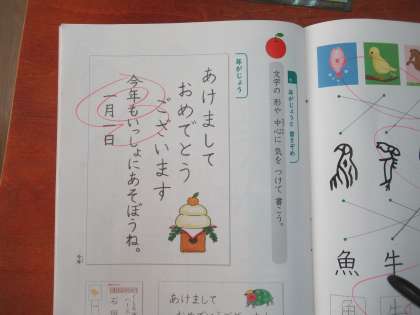 年がじょう
年がじょうと 書きぞめ
文字の 形や 中心に 気を つけて 書こう。
年がじょう
あけまして
おめでとう
ございます
今年もいっしょにあそぼうね。
一月一日
魚
牛
あけまして